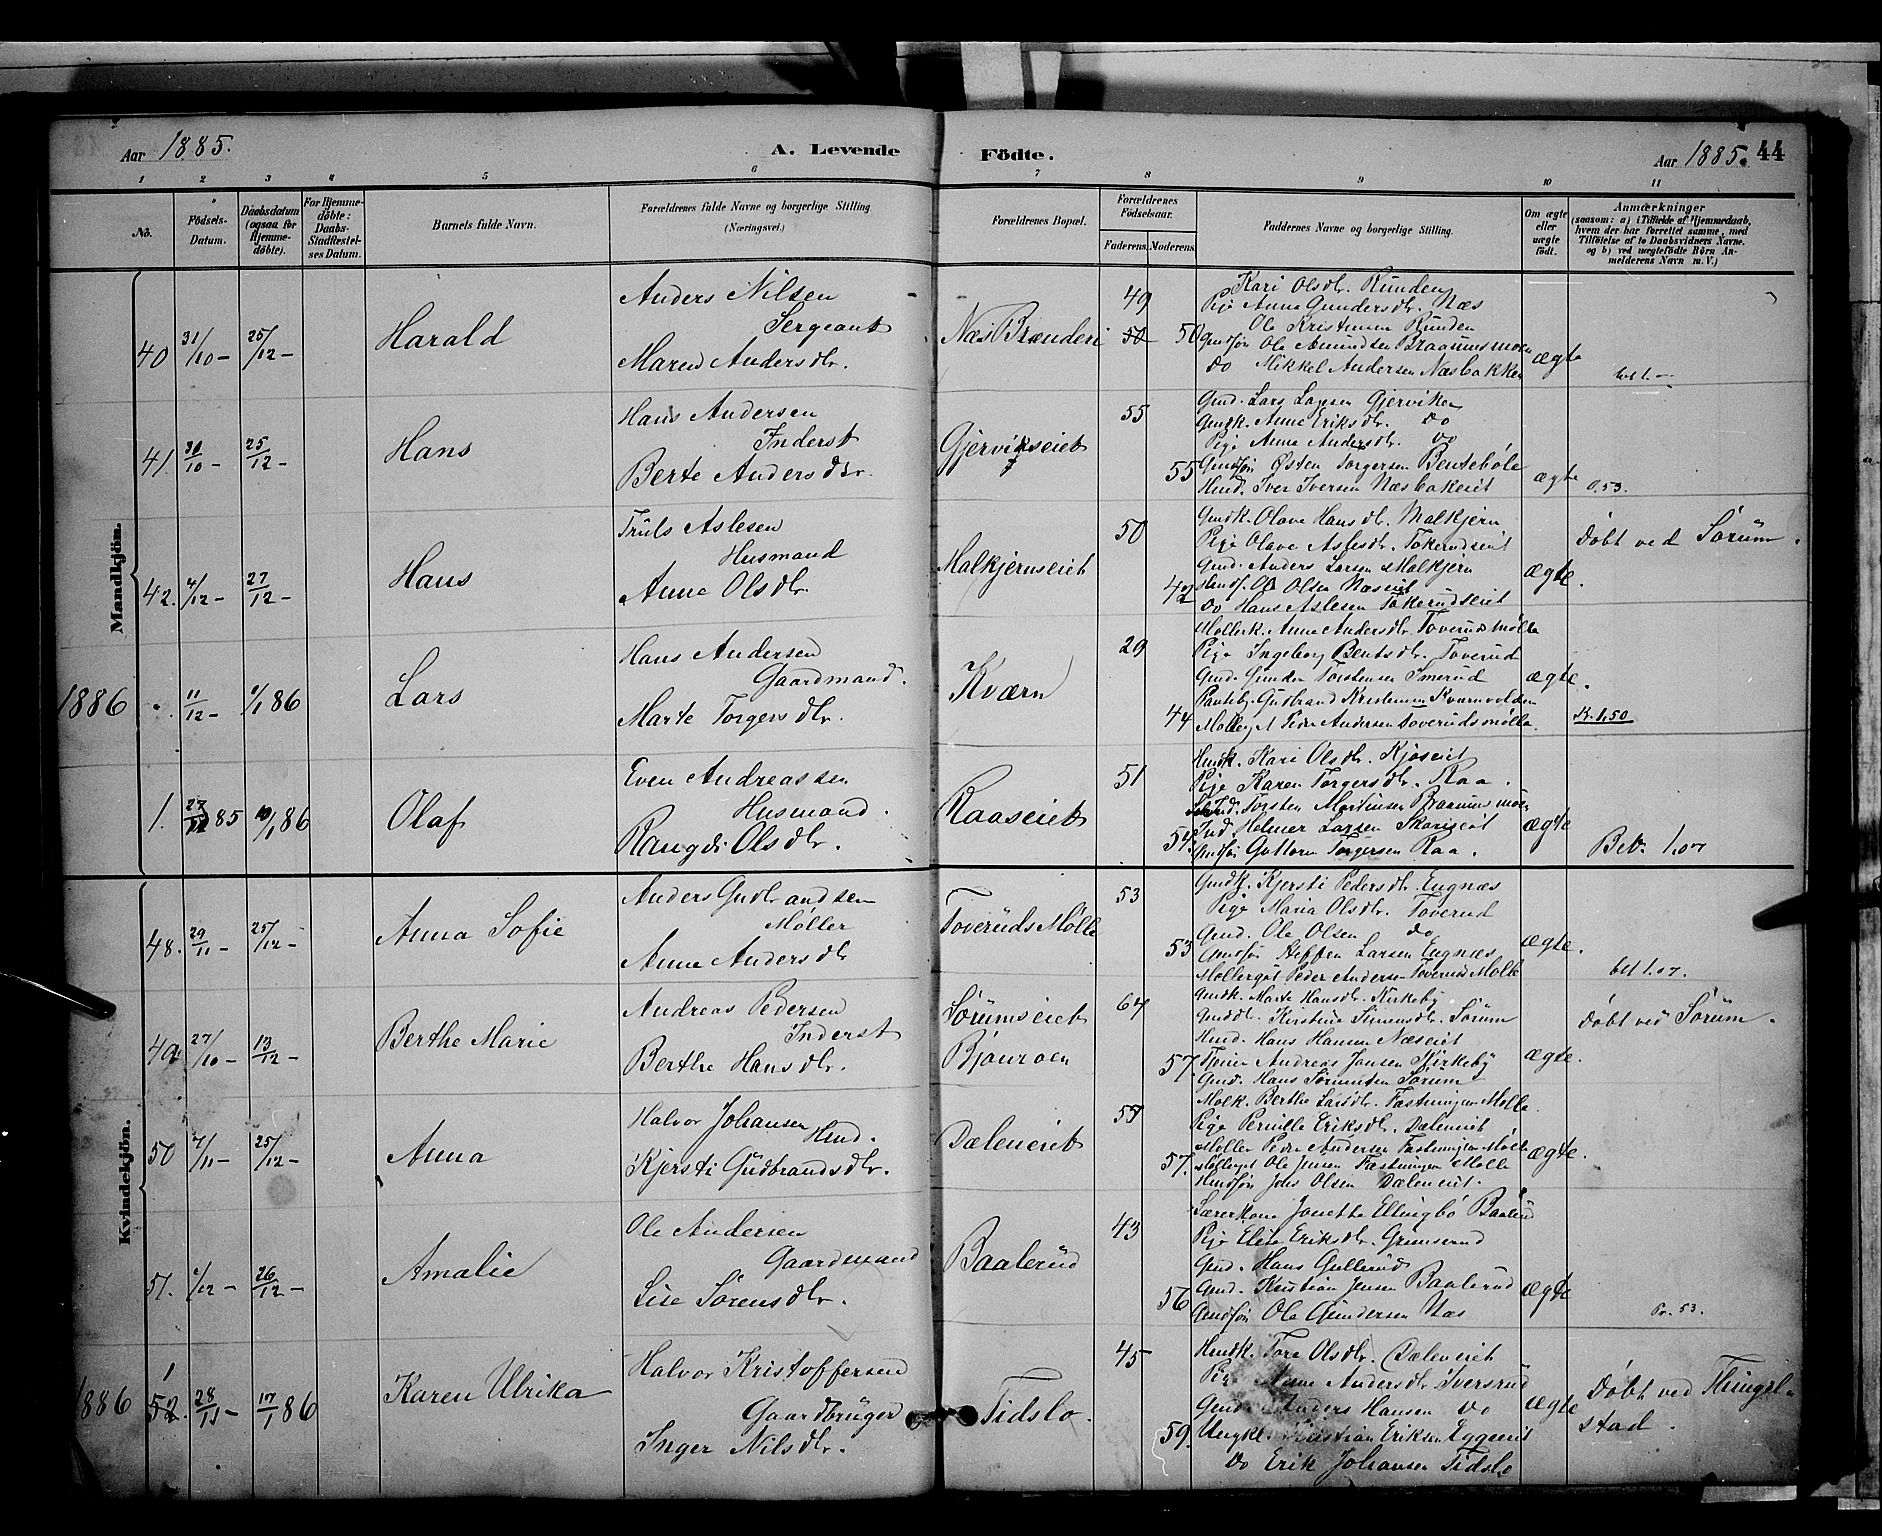 Aar 1885.
A. Levende
Födte.
Aar 1885. 44
1 2 3 4 5 6 7 8 9 10 11
No.
Födsels-Datum.
Daabsdatum (ogsaa for Hjemmedöbte).
For Hjemmedöbte: Daabs-Stadfestelses Datum.
Barnets fulde Navn.
Forældrenes fulde Navne og borgerlige Stilling (Næringsvei.)
Forældrenes Bopæl.
Forældrenes Födselsaar.
Faderens. Moderens.
Faddernes Navne og borgerlige Stilling.
Om ægte eller uægte födt.
Anmærkninger
(saasom: a) i Tilfælde af Hjemmedaab, hvem der har forrettet samme, med Tilföielse af to Daabsvidners Navne. og b) ved uægtefödte Börn Anmelderens Navn m. V.)
Mandkjön.
40 31/10 - 25/12 - Harald
Anders Nilsen
Sergeant
Maren Andersdtr.
Næs Brænderi
49
50 50
Kari Olsdtr. Runden
Pige Anne Gundersdtr. Næs
Ole Kristensen Runden
Gmdsøn Ole Amundsen Braanmsmoen
Do Mikkel Andersen Næsbakken
ægte
bet 1. -
41 30/10 - 25/12 - Hans
Hans Andersen
Inderst
Berte Andersdtr.
Gjervikseiet
55
55
Gmd. Lars Larsen Gjerviken
Gmdk. Anne Eriksdtr. do
Pige Anne Andersdtr. do
Gmdsøn Østen Torgersen Bentebøle
Hmd. Iver Iversen Næsbakeiet
ægte
0.53.
42. 4/12 - 27/12 - Hans
Truls Aslesen
Husmand
Anne Olsdtr.
Malkjernseiet
50
42
Gmdk. Olave Hansdtr. Malkjern
Pige Olave Aslesdtr. Tokerudseiet
Gmd. Anders Larsen Malkjern
Hmds. Ole Olsen Næseiet
do Hans Aslesen Tokerudseiet
ægte.
Døbt ved Sørum.
1886 11/12 - 1/1 86 Lars
Hans Andersen
Gaardmand.
Marte Torgersdtr.
Kværn
29
44
Møllerk. Anne Andersdtr. Toverudsmølla
Pige Ingeborg Bentsdtr. Toverud
Gmd. Gunder Torstensen Smerud
Gudbrand Kristensen Kværnvolden
Peder Andersen Toverudsmølla
ægte.
K. 1,50
1. 85 1/1 86 Olaf
Even Andreassen
Husmand.
Rangdi Olsdtr.
Raaseiet
51
54
Hmdk. Kari Olsdtr. Kjøseiet
Pige Karen Torgersdtr. Raa.
Torsten Martinsen Braanmsmoen
Ind. Helmer Larsen Skariseiet
Gmdsøn Guttorm Torgersen Raa.
ægte
Bet. 1.07
Kvindekjön.
48. 29/11 - 25/12 - Anna Sofie
Anders Gudbrandsen
Møller
Anne Andersdtr
Toveruds Mølle
53
53
Gmdk. Kjersti Pedersdtr. Engnæs
Pige Maria Olsdtr. Toverud
Gmd. Ole Olsen do
Gmdsøn Steffen Larsen Engnæs
Møllergut Peder Andersen Toveruds Mølle
ægte.
bet 1.07.
49 27/10 - 13/12 - Berthe Marie
Andreas Pedersen
Inderst
Berthe Hansdtr.
Sørumseiet
Bjønroen
64
57.
Gmdk. Marte Hansdtr. Kirkeby
Gmddtr. Kirstine Simensdtr. Sørum
Hmd. Hans Hansen Næseiet
Tjener Andreas Jansen Kirkeby
Gmd. Hans Sørensen Sørum
ægte.
Døbt ved Sørum.
50 4/11 - 25/12 - Anna
Halvor Johansen
Hmd.
Kjersti Gudbrandsdtr.
Dæleneiet
57.
Mølk. Berthe Larsdtr. Fastningen Mølla
Pige Pernille Eriksdtr. Dæleneiet
Møller Peder Andersen Fastningen Mølle
Møllergut Ole Jensen Fæstningen Mølle
Hmdsøn Johs Olsen Dæleneiet.
ægte.
51. 1/12 - 26/12 - Amalie
Ole Andersen
Gaardmand
Lise Sørensdtr.
Baalerud
43
56
Lærerkone Jonetta Ellingbø Baalerud
Pige Elise Eriksdtr. Grimserud
Gmd. Hans Gullerud
Gmd. Kristian Jensen Baalerud
Gmdsøn Ole Gundersen Næs
ægte
Pr. 53.
1886 1 52. 28/11 - 17/1 86 Karen Ulrika
Halvor Kristoffersen
Gaardbruger
Inger Nilsdtr.
Tidslo.
45
59.
Hmdk. Tore Olsdtr. Dæleneiet
Pige Anne Andersdtr Iversrud
Gmd. Anders Hansen do
Ungkl. Kristian Eriksen Eggeeiet
Do Erik Johansen Tidslo
ægte
Døbt ved Thingelstad.